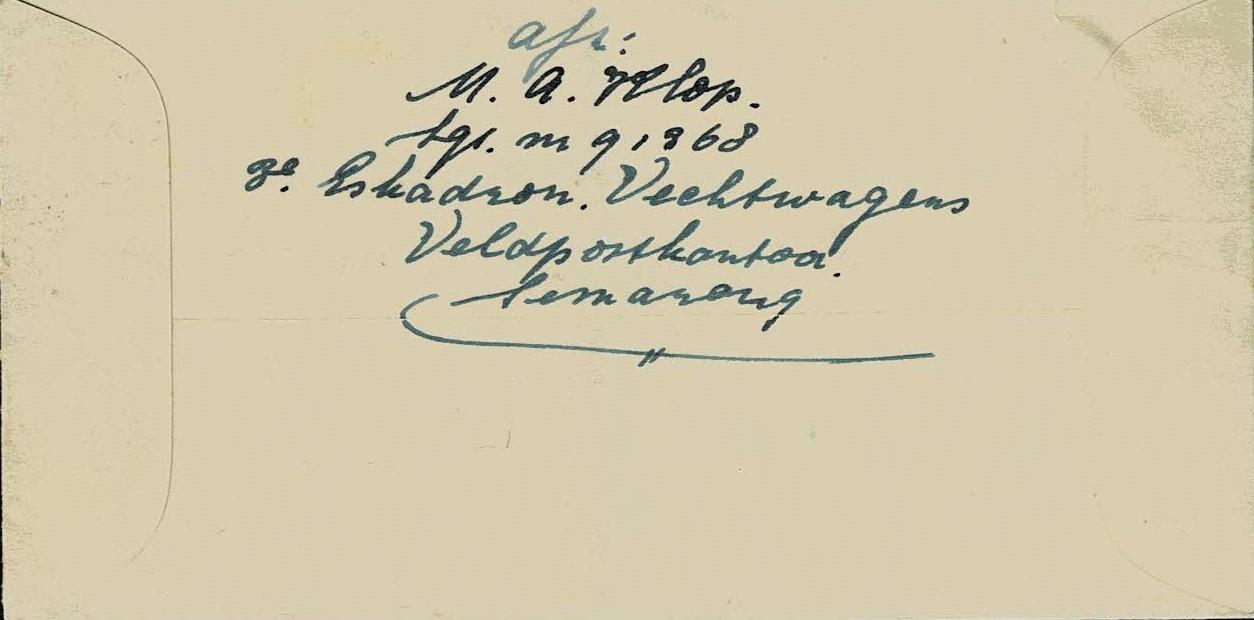 afz:
M. A. Klop.
sgt. m 9,1368
3e. Eskadron. Vechtwagens
Veldpostkantoor.
Semarang